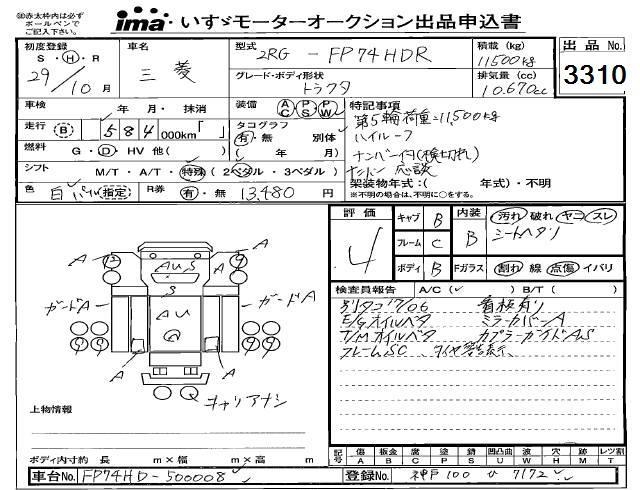 ◎赤太枠内は必ず
ボールペンで
ご記入下さい。
ima いすゞモーターオークション出品申込書
初度登録 S・H・R 29/10月
車名 三菱
型式 2RG-FP74HDR
グレード・ボディ形状 トラクタ
積載 (kg) 11500kg
排気量 (cc) 10.670cc
出品 No.
3310
車検 年 月・抹消
走行 (B) 584000km「 」
燃料 G・D・HV 他( )
シフト M/T・A/T・特殊(2ペダル・3ペダル)
色 白 パイ(指定) R券 有・無 13,480円
装備 AC PS PW
タコグラフ 有・無 別体
( 年 月)
特記事項
第5輪荷重=11,500kg
ハイルーフ
ナンバー付(検切れ)
応談
架装物年式:( 年式)・不明
※不明の場合は、不明に○をする。
評価 4
キャブ B
フレーム C
ボディ B
内装 B 汚れ 破れ ヤニ スレ
シートヘタリ
Fガラス 割れ 線 点傷 イバリ
検査員報告 A/C(✓) B/T( )
別タコ'17/06 看板有り
E/Gオイルベタ ミラーカバーA
T/Mオイルベタ カプラーガイドAS
フレームSC タイヤ警告表示、
A A
AUS
S
ガードA AU ガードA
A A
キャリアナシ
上物情報
ボディ内寸約 長 m×幅 m×高 m
記号 傷A 板金B 腐C 塗P 錆S 凹凸曲U 波W 穴H 跡M レツ割T
車台No. FP74HD-500008
登録No. 神戸 100 ひ 7172